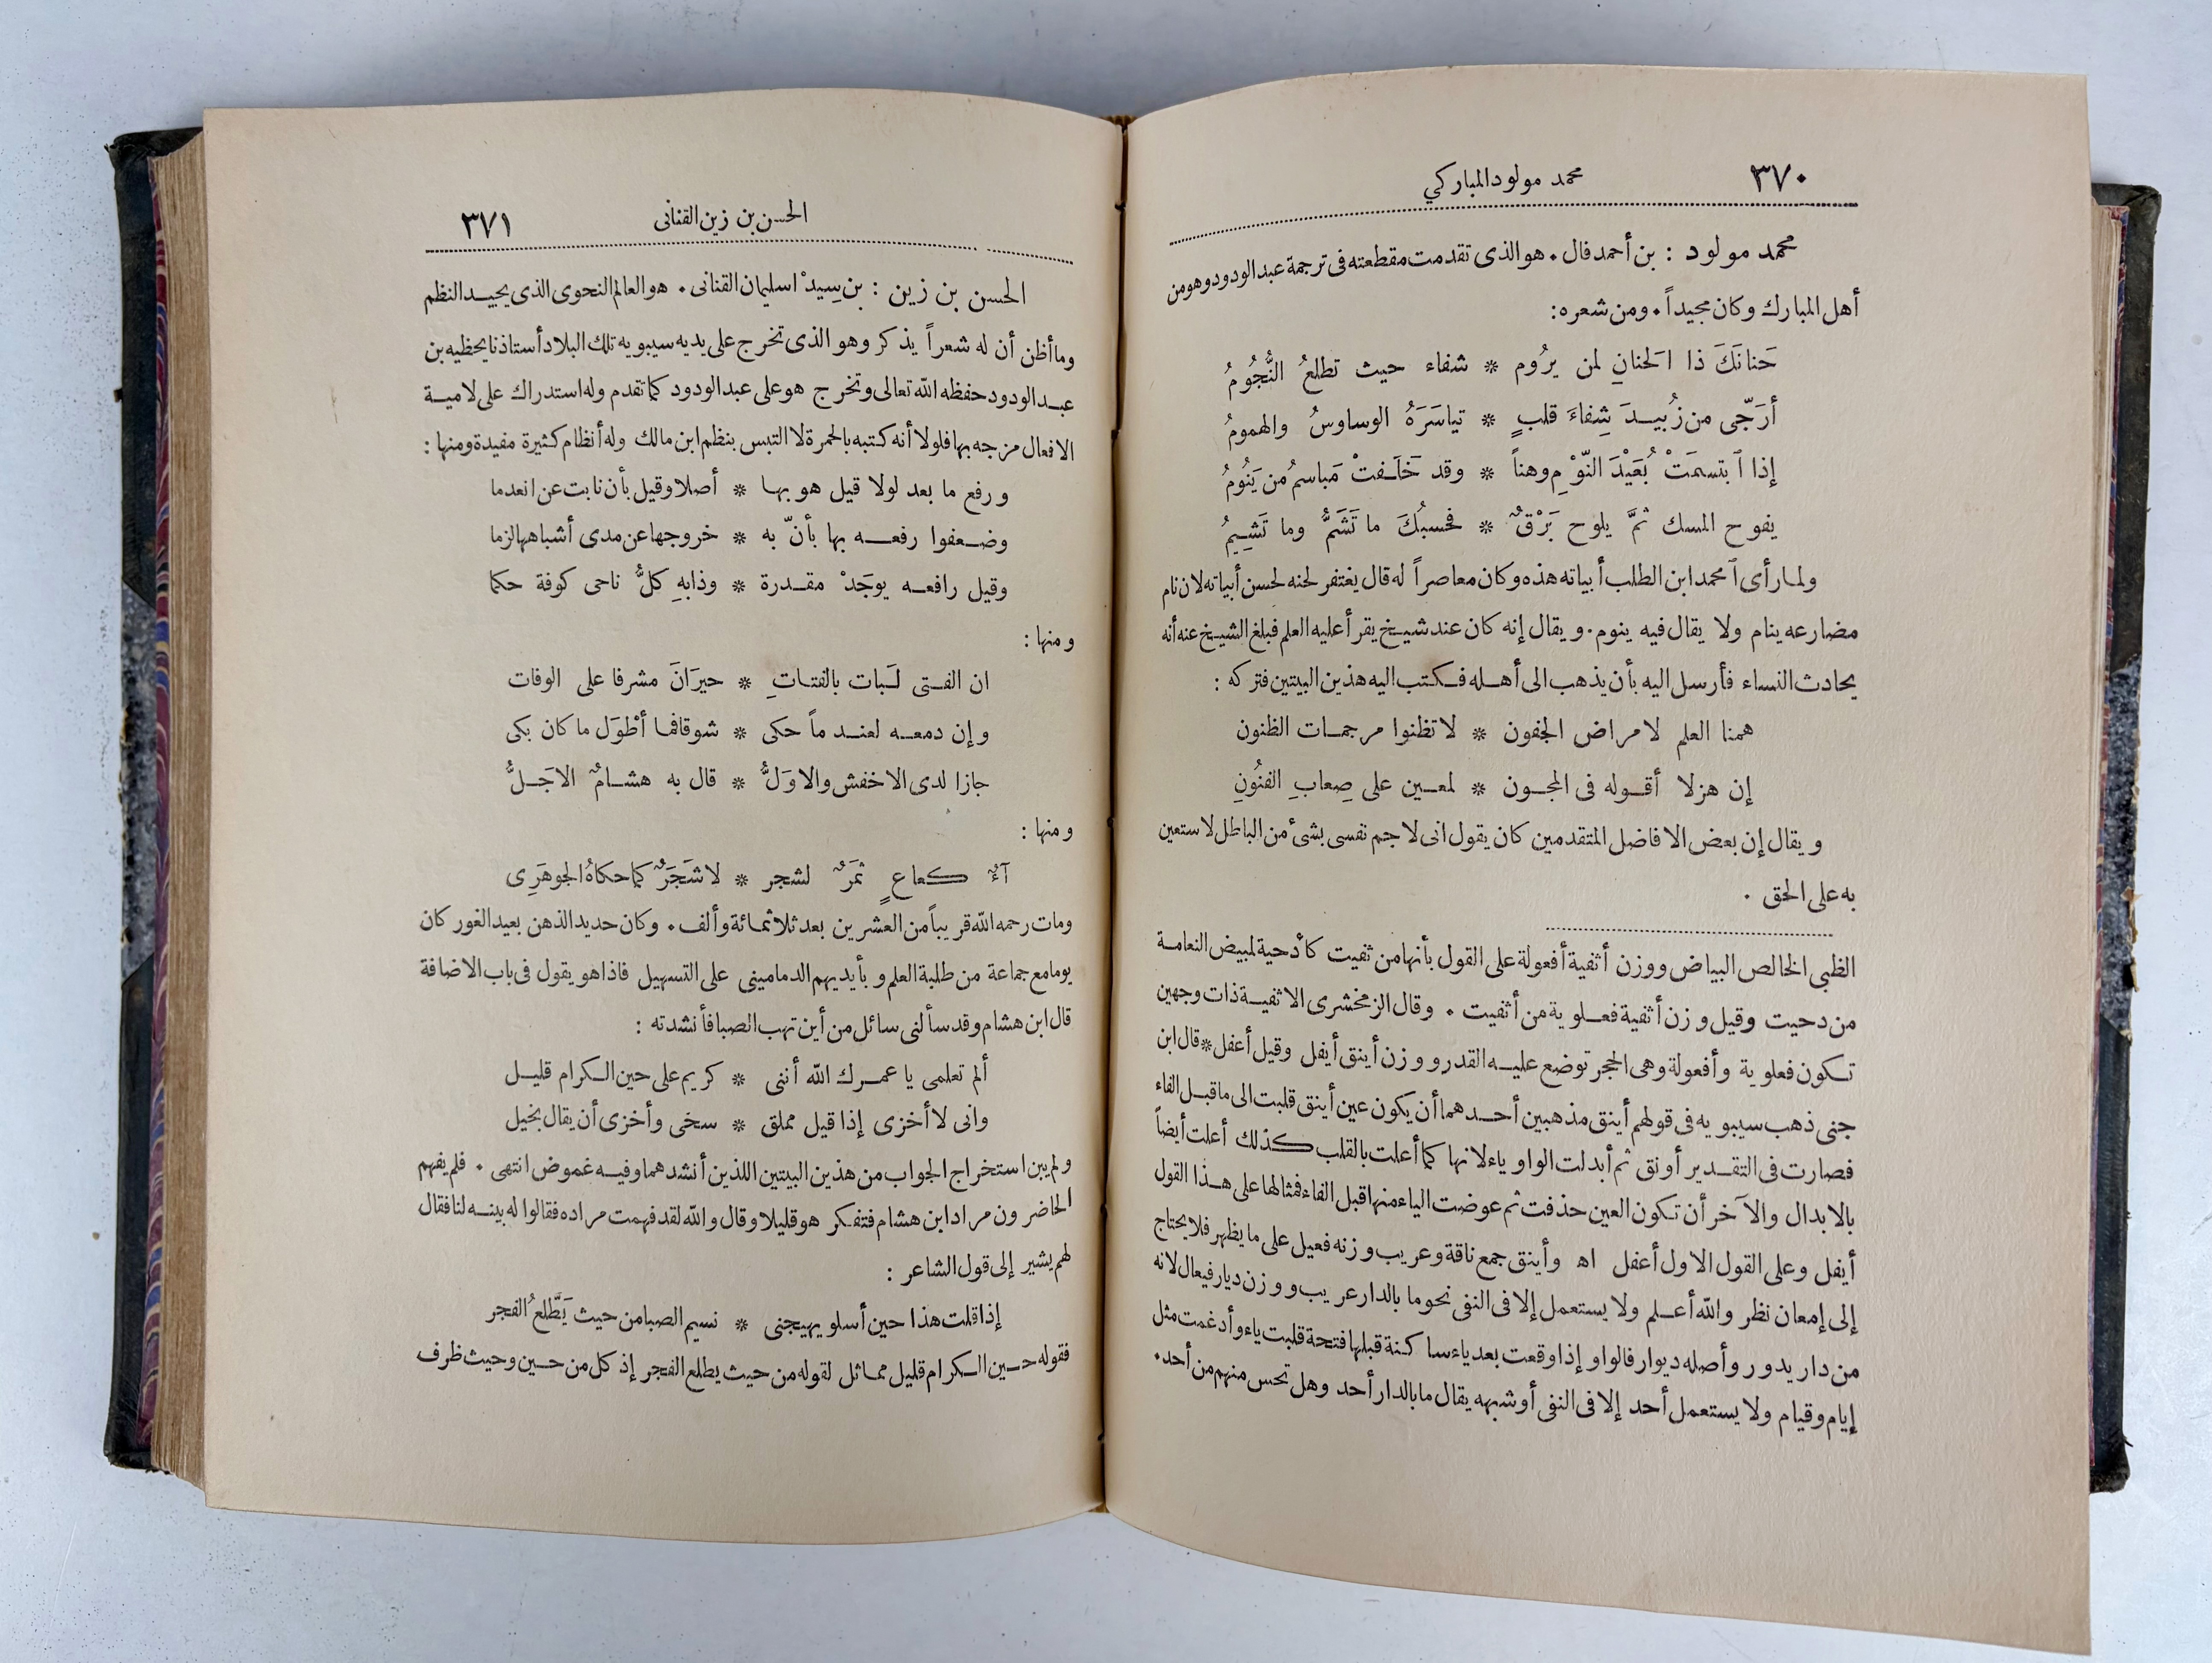 محمد مولود المباركي ٣٧٠
محمد مولود : بن أحمد فال . هو الذى تقدمت مقطعته فى ترجمة عبد الودود وهو من
أهل المبارك وكان مجيداً . ومن شعره :
حَنانَكَ ذا الَحنانِ لمن يرُوم * شفاء حيث تطلعُ النُّجُومُ
أرَجّى من زُبيــدَ شِفاءَ قلبٍ * تياسَرَهُ الوساوسُ والهمومُ
إذا ٱبتسمَتْ بُعَيْدَ النّوْمِ وهناً * وقد خَلَـفتْ مَباسمُ من يَنُومُ
يفوح المسك ثمَّ يلوح بَرْقٌ * فحسبُكَ ما تَشَمُّ وما تَشِيمُ
ولمـا رأى ٱمحمد ابن الطلب أبياته هذه وكان معاصراً له قال يغتفر لحنه لحسن أبياته لان نام
مضارعه ينام ولا يقال فيه ينوم . ويقال إنه كان عند شيـخ يقرأ عليه العلم فبلغ الشيـخ عنه أنه
يحادث النساء فأرسل اليه بأن يذهب الى أهـله فـكتب اليه هذين البيتين فتركه :
همنا العلم لا مراض الجفون * لا تظنوا مرجمـات الظنون
إن هزلا أقـوله فى المجـون * لمعـين على صِعابِ الفنُونِ
ويقال إن بعض الافاضل المتقدمين كان يقول انى لاجم نفسى بشئ من الباطل لاستعين
به على الحق .
الظبى الخالص البياض ووزن أثفية أفعولة على القول بأنها من ثفيت كأدحية لمبيض النعامـة
من دحيت وقيل وزن أثفية فعـلوية من أثفيت . وقال الزمخشرى الاثفيـة ذات وجهين
تـكون فعلوية وأفعولة وهى الحجر توضع عليـه القدر ووزن أينق أيفل وقيل أعفل * قال ابن
جنى ذهب سيبويه فى قولهم أينق مذهبين أحـدهما أن يكون عين أينق قلبت الى ما قبـل الفاء
فصارت فى التقـدير أونق ثم أبدلت الواو ياء لانها كما أعلت بالقلب كـذلك أعلت أيضاً
بالابدال والآخر أن تـكون العين حذفت ثم عوضت الياء منها قبل الفاء فمثالها على هـذا القول
أيفل وعلى القول الاول أعفل اه وأينق جمع ناقة وعريب وزنه فعيل على ما يظهر فلا يحتاج
إلى إمعان نظر والله أعـلم ولا يستعمل إلا فى النفى نحو ما بالدار عريب ووزن ديار فيعال لانه
من دار يدور وأصله ديوار فالواو إذا وقعت بعد ياء ساكـنة قبلها فتحة قلبت ياء وأدغمت مثل
إيام وقيام ولا يستعمل أحد إلا فى النفى أو شبهه يقال ما بالدار أحد وهل تحس منهم من أحد .
الحسن بن زين القنانى ٣٧١
الحسن بن زين : بن سِيدْ اسليمان القنانى . هو العالم النحوى الذى يجيـد النظم
وما أظن أن له شعراً يذكر وهو الذى تخرج على يديه سيبويه تلك البلاد أستاذنا يحظيه بن
عبـد الودود حفظه الله تعالى وتخرج هو على عبد الودود كما تقدم وله استدراك على لاميـة
الافعال مزجه بها فلولا أنه كـتبه بالحمرة لالتبس بنظم ابن مالك وله أنظام كثيرة مفيدة ومنها :
ورفع ما بعد لولا قيل هو بهـا * أصلا وقيل بأن نابت عن انعدما
وضـعفوا رفعـه بها بأنّ به * خروجها عن مدى أشباهها لزما
وقيل رافعـه يوجَدْ مقـدرة * وذا بهِ كلُّ ناحى كوفة حكما
ومنها :
ان الفـتى لَـبات بالفتـاتِ * حيرَانَ مشرفا على الوفات
وإن دمعـه لعنـد ماً حكى * شوقا فمـا أطْوَل ما كان بكى
جازا لدى الاخفش والاوَلُّ * قال به هشـامٌ الاجَـلُّ
ومنها :
آءٌ كـعاعٍ ثمَرٌ لشجر * لا شَجَرٌ كما حكاهُ الجوهَرِى
ومات رحمه الله قريباً من العشرين بعد ثلاثمـائة وألف . وكان حديد الذهن بعيد الغور كان
يوما مع جماعة من طلبة العلم وبأيديهم الدمامينى على التسهيل فاذا هو يقول فى باب الاضافة
قال ابن هشام وقد سألنى سائل من أين تهب الصبا فأنشدته :
ألم تعلمى يا عمـرك الله أننى * كريم على حين الـكرام قليـل
وانى لا أخزى إذا قيل مملق * سخى وأخزى أن يقال بخيل
ولم يبن استخراج الجواب من هذين البيتين اللذين أنشدهما وفيـه غموض انتهى . فلم يفهم
الحاضرون مراد ابن هشام فتفـكر هو قليلا وقال والله لقد فهمت مراده فقالوا له بينـه لنا فقال
لهم يشير إلى قول الشاعر :
إذا قلت هذا حين أسلو يهيجنى * نسيم الصبا من حيث يَطَّلعُ الفجر
فقوله حـين الـكرام قليل ممـاثل لقوله من حيث يطلع الفجر إذ كل من حـين وحيث ظرف